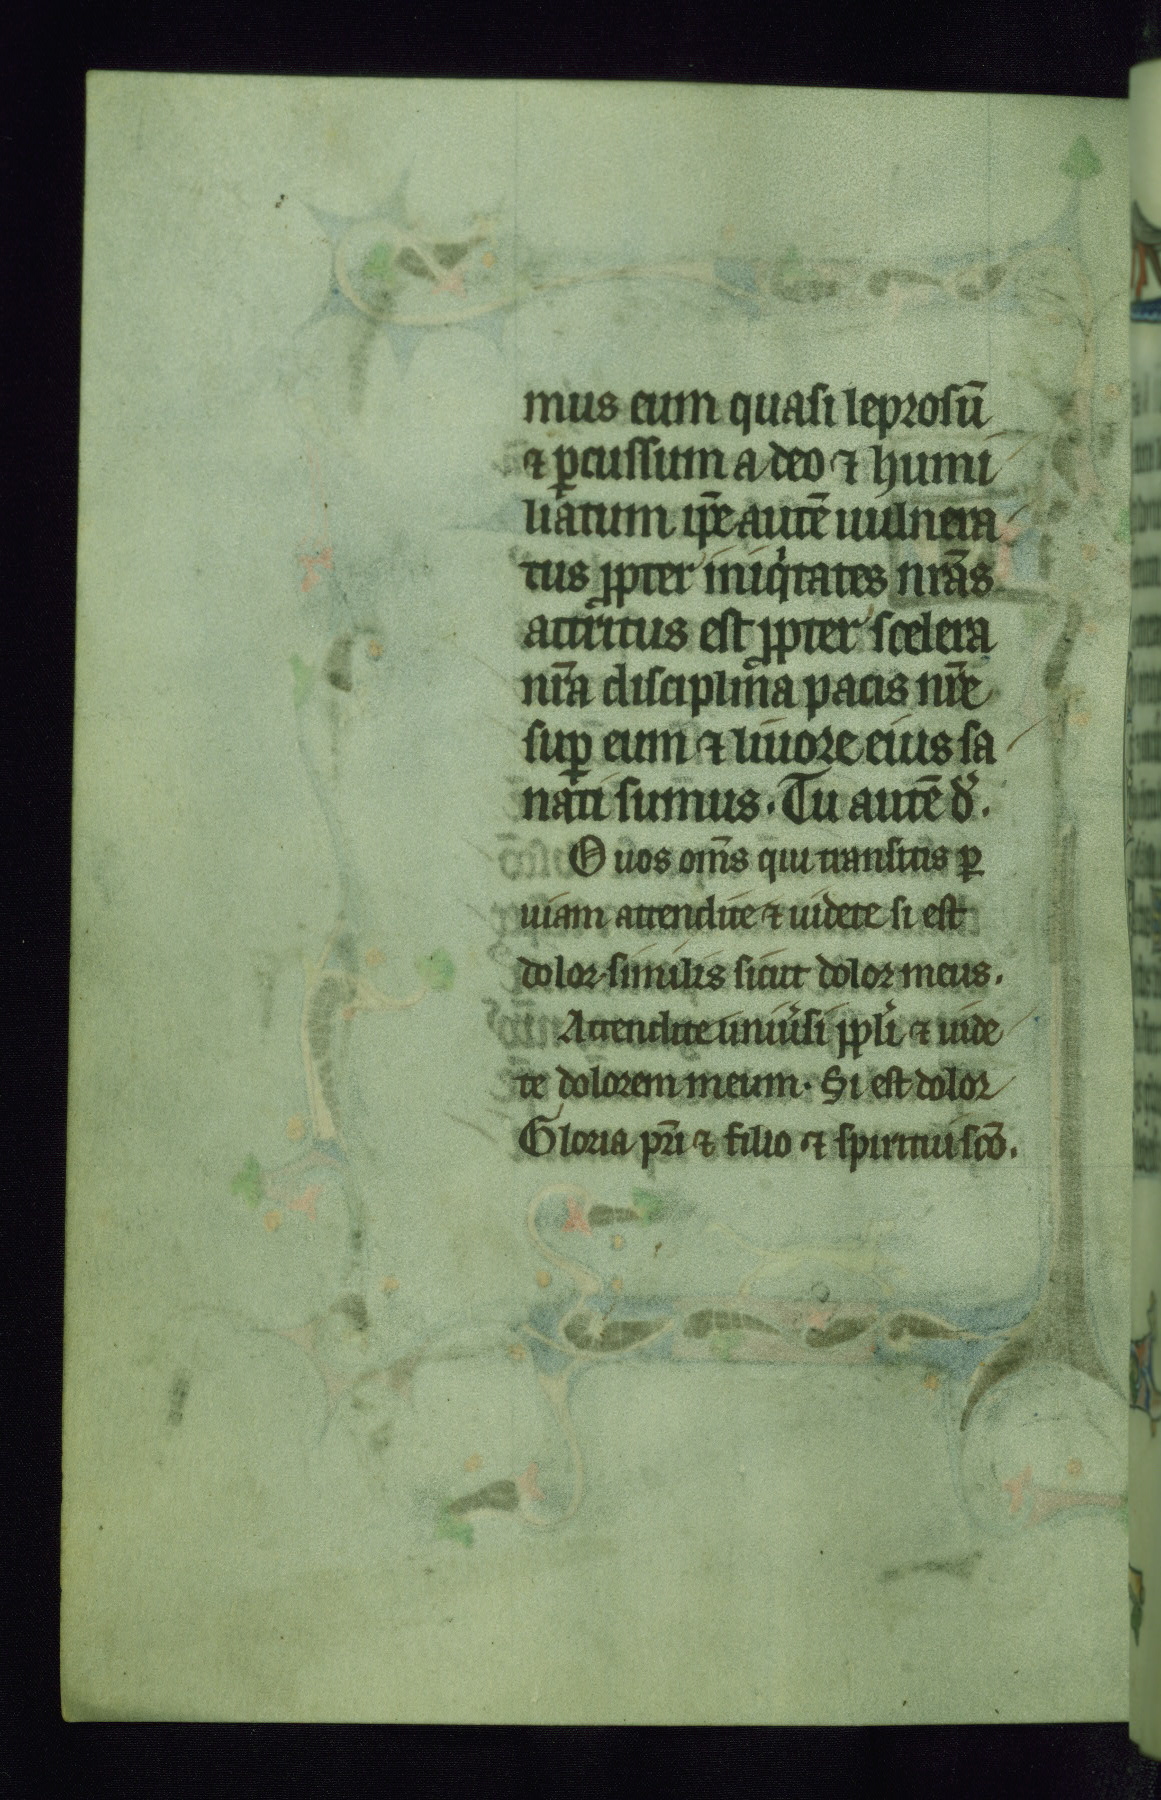 mus eum quasi leprosū
⁊ ꝑcussum a deo ⁊ humi
liatum ip̄e autē uulnera
tus ꝓpter iniqͥtates nr̄as
attritus est ꝓpter scelera
nr̄a disciplina pacis nr̄e
suꝑ eum ⁊ liuore eius sa
nati sumus. Tu autē d̄.
O uos om̄s qui transitis ꝑ
uiam attendite ⁊ uidete si est
dolor similis sicut dolor meus.
Attendite uniu̾si pp̄li ⁊ uide
te dolorem meum. Si est dolor
Gloria pr̄i ⁊ filio ⁊ spiritui sc̄o.